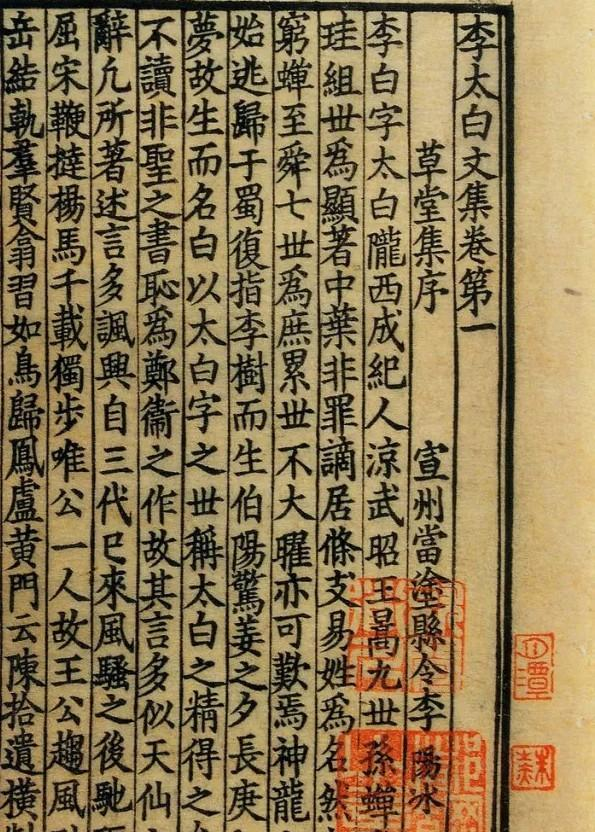 李太白文集卷第一
草堂集序 宣州當塗縣令李陽冰
李白字太白隴西成紀人涼武昭王暠九世孫蟬
珪組世爲顯著中葉非罪謫居條支易姓爲名然
窮蟬至舜七世爲庶累世不大曜亦可歎焉神龍
始逃歸于蜀復指李樹而生伯陽驚姜之夕長庚
夢故生而名白以太白字之世稱太白之精得之
不讀非聖之書恥爲鄭衞之作故其言多似天仙
辭凡所著述言多諷興自三代已來風騷之後馳
屈宋鞭撻楊馬千載獨步唯公一人故王公趨風
岳結軌羣賢翕習如鳥歸鳳盧黃門云陳拾遺橫